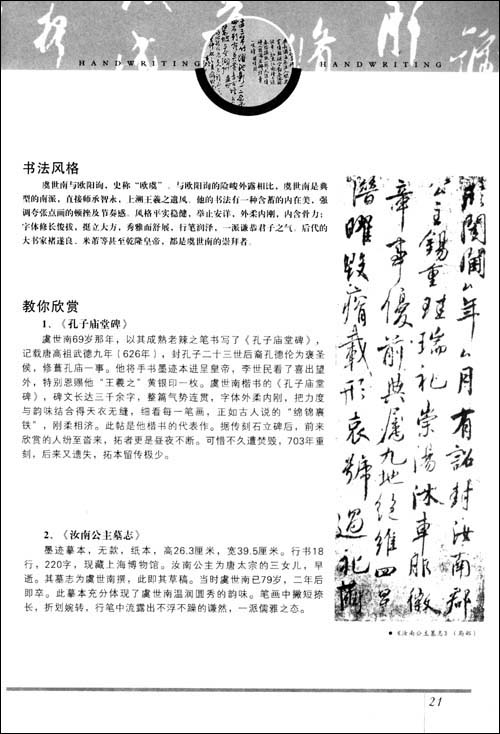 HANDWRITING HANDWRITING
书法风格
虞世南与欧阳询，史称“欧虞”．与欧阳询的险峻外露相比，虞世南是典
型的南派，直接师承智永，上溯王羲之遗风．他的书法有一种含蓄的内在美，强
调夸张点画的顿挫及节奏感．风格平实稳健，举止安详，外柔内刚，内含骨力；
字体修长俊拔，挺立大方，秀雅而舒展，行笔润泽，一派谦恭君子之气．后代的
大书家褚遂良、米芾等甚至乾隆皇帝，都是虞世南的崇拜者．
教你欣赏
1．《孔子庙堂碑》
虞世南69岁那年，以其成熟老辣之笔书写了《孔子庙堂碑》，
记载唐高祖武德九年（626年），封孔子二十三世后裔孔德伦为褒圣
侯，修葺孔庙一事。他将手书墨迹本进呈皇帝，李世民看了喜出望
外，特别恩赐他“王羲之”黄银印一枚。虞世南楷书的《孔子庙堂
碑》，碑文长达三千余字，整篇气势连贯，字体外柔内刚，把力度
与韵味结合得天衣无缝，细看每一笔画，正如古人说的“绵锦裹
铁”，刚柔相济。此帖是他楷书的代表作。据传刻石立碑后，前来
欣赏的人纷至沓来，拓者更是昼夜不断。可惜不久遭焚毁，703年重
刻，后来又遗失，拓本留传极少。
2．《汝南公主墓志》
墨迹摹本，无款，纸本，高26.3厘米，宽39.5厘米。行书18
行，220字，现藏上海博物馆。汝南公主为唐太宗的三女儿，早
逝。其墓志为虞世南撰，此即其草稿。当时虞世南已79岁，二年后
即卒。此摹本充分体现了虞世南温润圆秀的韵味。笔画中撇短捺
长，折划婉转，行笔中流露出不浮不躁的谦然，一派儒雅之态。
年 月有诏封汝南郡
公主锡重珪瑞礼崇汤沐车服徽
章事优前典属九地绝维四星
潜曜毁瘠载形哀号过礼茧
●《汝南公主墓志》（局部）
21